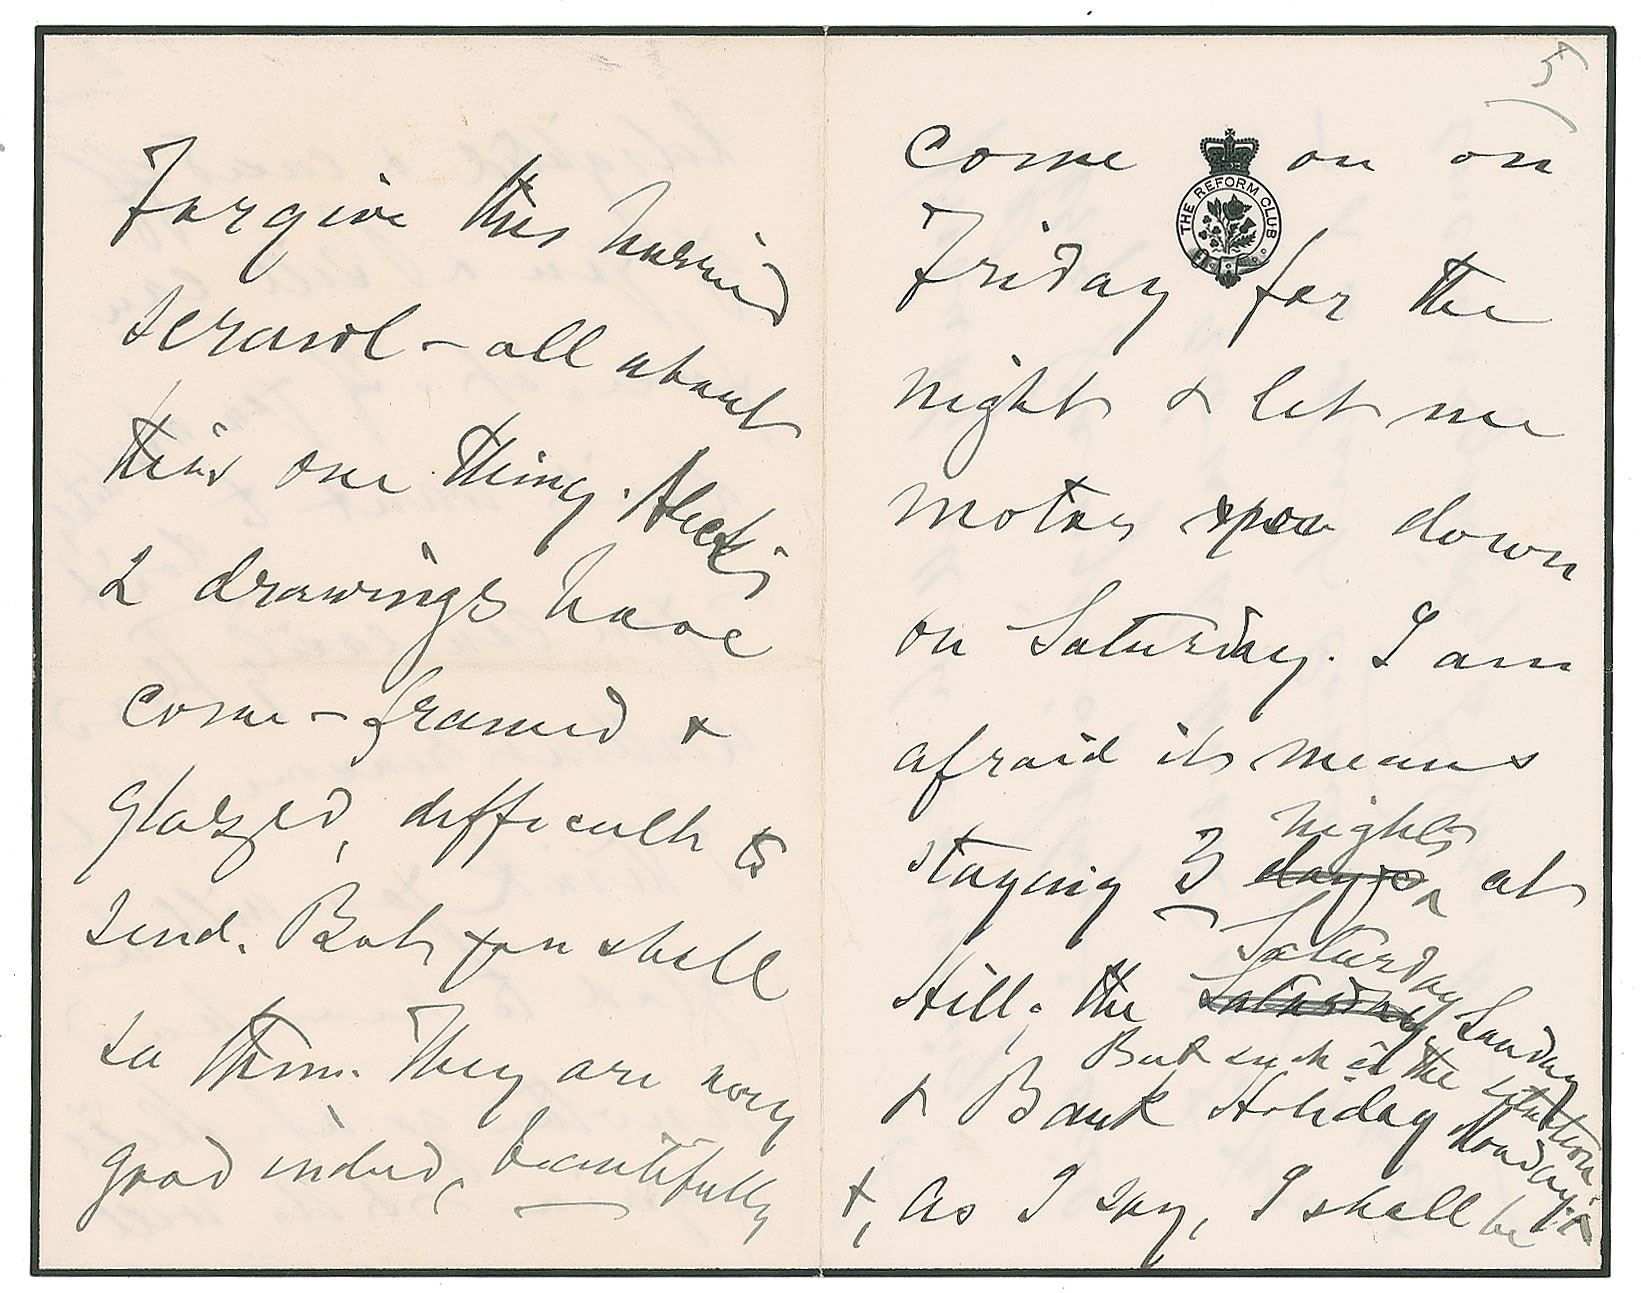 Forgive this hurried
scrawl – all about
this one thing. Alick's
2 drawings have
come – framed &
glazed, difficult to
send. But you shall
see them. They are very
good indeed, beautifully
5
come on on
THE REFORM CLUB
Friday for the
night & let me
motor you down
on Saturday. I am
afraid it means
nights
staying 3 days at
Saturday
Hill; the Saturday, Sunday
But such is the situation.
& Bank Holiday Monday;
&, as I say, I shall be